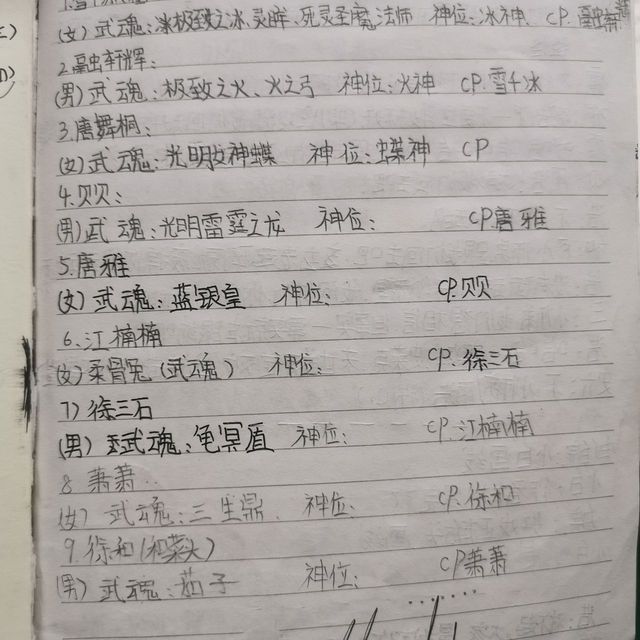 (女) 武魂:冰极致之冰、灵眸、死灵圣魔法师 神位:冰神 CP.
2.
(男) 武魂:极致之火、火之弓 神位:火神 CP.雪千冰
3.唐舞桐:
(女) 武魂:光明女神蝶 神位:蝶神 CP
4.贝贝:
(男) 武魂:光明雷霆之龙 神位: CP.唐雅
5.唐雅
(女) 武魂:蓝银皇 神位: CP.贝贝
6.江楠楠
(女) 柔骨兔(武魂) 神位: CP.徐三石
7) 徐三石
(男) 武魂:龟冥盾 神位: CP.江楠楠
8 萧萧
(女) 武魂:三生鼎 神位: CP.徐和
9.徐和(和菜头)
(男) 武魂:茄子 神位: CP萧萧